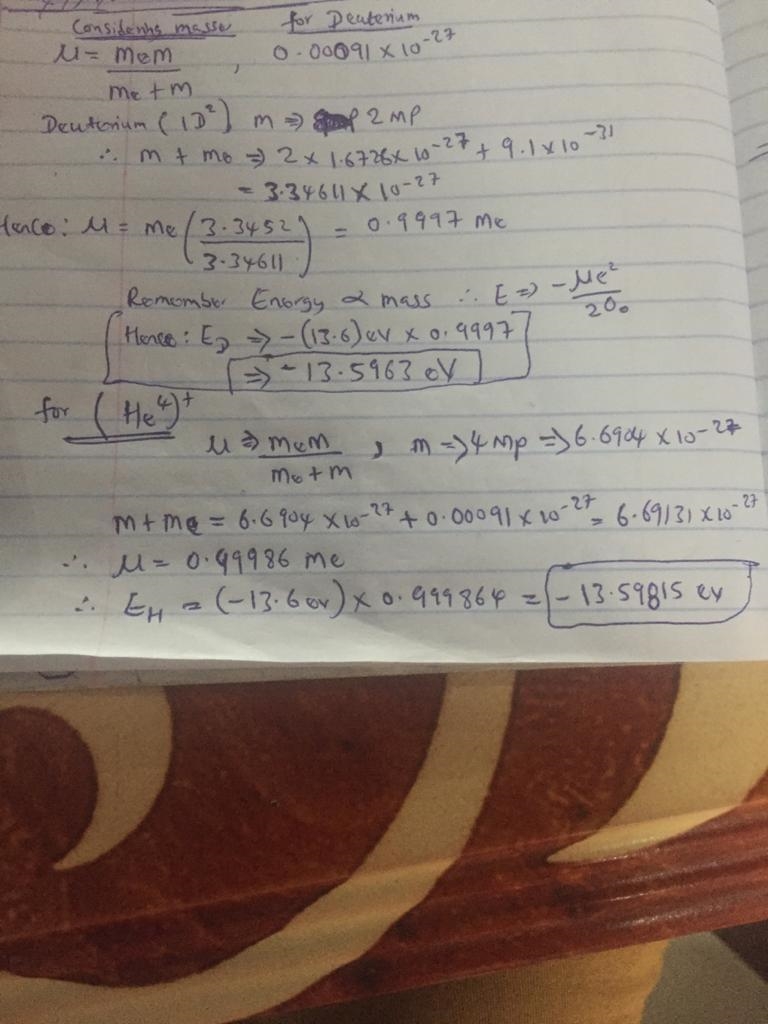 Considering masse for Deuterium
μ = mem / me + m , 0.00091 × 10^-27
Deuterium (1D²) m ⇒ 2 mp
∴ m + me ⇒ 2 × 1.6726 × 10^-27 + 9.1 × 10^-31
= 3.34611 × 10^-27
Hence: μ = me (3.3452 / 3.34611) = 0.9997 me
Remember Energy ∝ mass ∴ E ⇒ -μe² / 20o
Hence: ED ⇒ -(13.6) eV × 0.9997
⇒ -13.5963 eV
for (He⁴)⁺
μ ⇒ mem / me + m , m ⇒ 4 mp ⇒ 6.6904 × 10^-27
m + me = 6.6904 × 10^-27 + 0.00091 × 10^-27 = 6.69131 × 10^-27
∴ μ = 0.99986 me
∴ EH = (-13.6 ev) × 0.999864 = -13.59815 ev